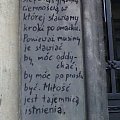 ciemności, w
której stawiamy
kroki po omacku.
Ponieważ musimy
je stawiać
by móc oddy-
chać,
by móc po prostu
być. Miłość
jest tajemnicą
istnienia.